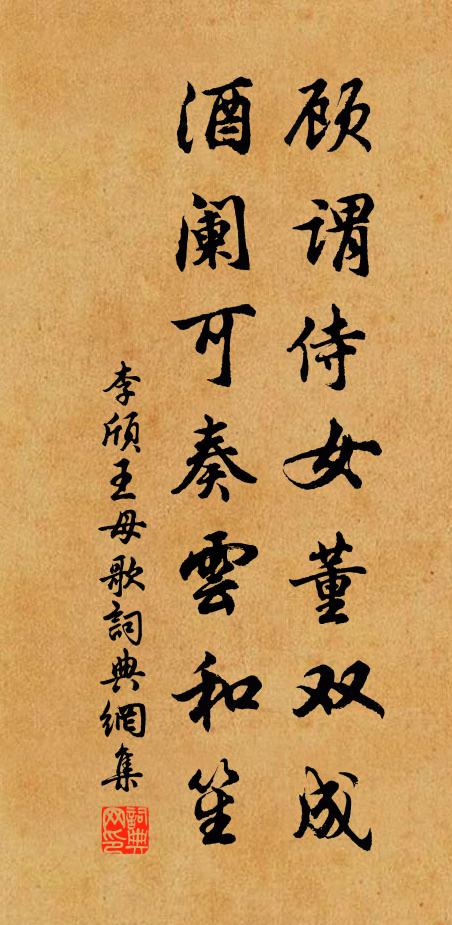 顾谓侍女董双成
酒阑可奏雲和笙
李颀王母歌詞典網集
詞典網印